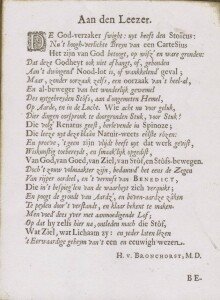 Aan den Leezer.
DE God-verzaker swight: nyt heeft den Stoicus:
Na't loogh-verlichte Breyn van een Cartesius
Het zijn van God betoogt, op wiss' en ware gronden:
Dat deze Godheyt ook niet afhangt, of, gebonden
Aan't dwingend' Nood-lot is, of wankkelend' geval;
Maar, zonder oorzaak zelfs, een oorzaak van 't heel-al,
En al-beweger van het wonderlijk gewemel
Des uytgebreyden Stofs, aan d'ongemeten Hemel,
Op Aarde, en in de Lucht. Wie acht nu voor geluk,
Dier dingen oorspronk te doorgronden Stuk, voor Stuk?
Die volg Renatus geest, herlevende in Spinoze;
Die leeze uyt dezen blaân Natuir-weets eêlste roozen;
En proeve, 't geen nyt zijn vrught dat werk getuyt,
Wiskunstig t'onderzoekt, en smaakelijk opgedist,
Van God, van Goed, van Ziel, van Stof, en Stofs-bewegen.
Doch't zoume volmaakter zijn, bedamd het eens de Zegen
Van rijper oordeel, en 't vernuft van BENEDICT,
Die in't besprey len van de waarheyt zich verpikt;
En poogt de grondt van Aardze, en boven-aardze zaken
Te peylen door't verstandt, en klaar bekent te maken.
Men voed dees yver met aanmoedigend Lof;
Op dat hy zelfs hier na, ontleeden mach die Stof,
Wat Ziel, wat Lichaam zy: en ieder laten siegen
't Eerwaardige geheym van't een en eeuwigh wezen.
H. v. BRONCHORST, M.D.
BE-